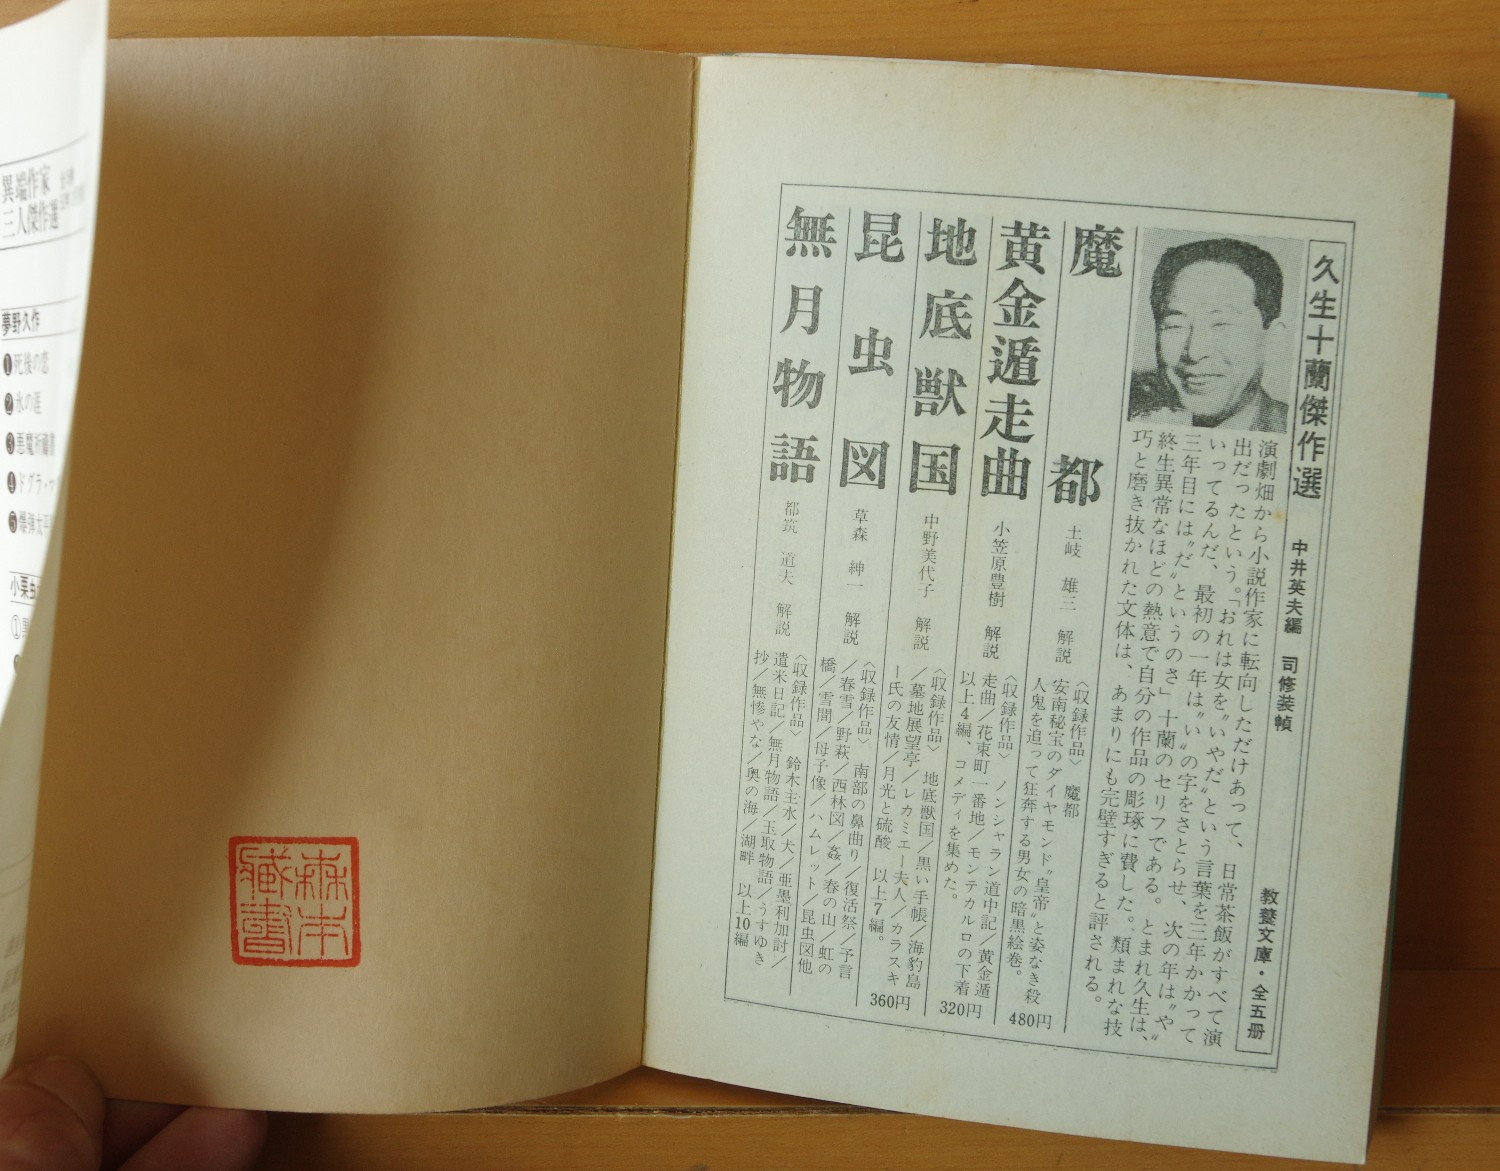 久生十蘭傑作選 中井英夫編 司修装幀 教養文庫・全五册
演劇畑から小説作家に転向しただけあって、日常茶飯がすべて演
出だったという。「おれは女を〝いやだ〟という言葉を三年かかって
いってるんだ、最初の一年は〝い〟の字をさとらせ、次の年は〝や〟
三年目には〝だ〟というのさ」十蘭のセリフである。とまれ久生は、
終生異常なほどの熱意で自分の作品の彫琢に費した。類まれな技
巧と磨き抜かれた文体は、あまりにも完璧すぎると評される。
魔都 土岐 雄三 解説
〈収録作品〉 魔都
安南秘宝のダイヤモンド〝皇帝〟と姿なき殺
人鬼を追って狂奔する男女の暗黒絵巻。
480円
黄金遁走曲 小笠原豊樹 解説
〈収録作品〉 ノンシャラン道中記/黄金遁
走曲/花束町一番地/モンテカルロの下着
以上4編、コメディを集めた。
320円
地底獣国 中野美代子 解説
〈収録作品〉 地底獣国/黒い手帳/海豹島
/墓地展望亭/レカミエー夫人/カラスキ
ー氏の友情/月光と硫酸 以上7編。
360円
昆虫図 草森 紳一 解説
〈収録作品〉 南部の鼻曲り/復活祭/予言
/春雪/野萩/西林図/姦/春の山/虹の
橋/雪間/母子像/ハムレット/昆虫図他
無月物語 都筑 道夫 解説
〈収録作品〉 鈴木主水/犬/亜墨利加討/
遣米日記/無月物語/玉取物語/うすゆき
抄/無惨やな/奥の海/湖畔 以上10編
森本
蔵書
異端作家
三人傑作選
夢野久作
❶死後の恋
❷氷の涯
❸悪魔祈祷書
❹ドグラ・マ
❺爆弾太平
小栗虫